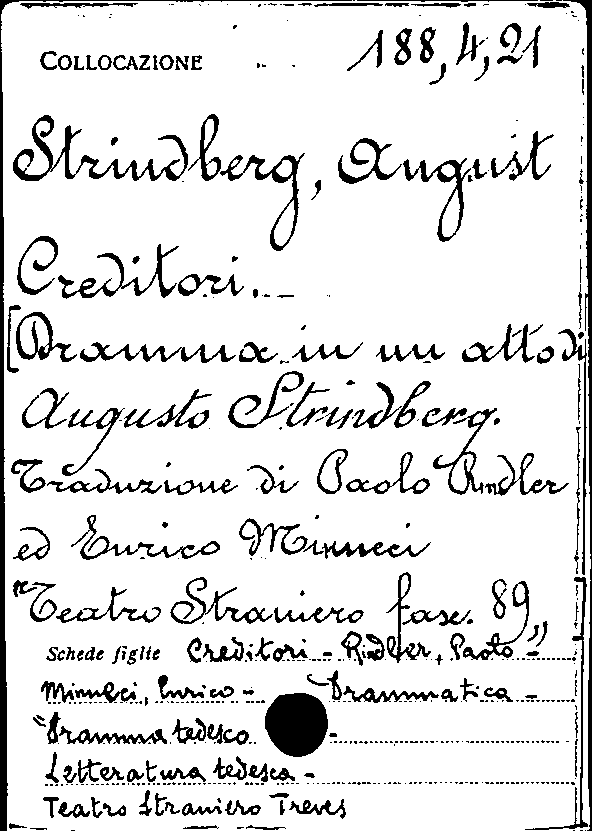 COLLOCAZIONE 188,4,21
Strindberg, August
Creditori.
[Dramma in un atto di
Augusto Strindberg.
Traduzione di Paolo Rindler
ed Enrico Minneci
"Teatro Straniero fasc. 89„
Schede figlie Creditori - Rindler, Paolo -
Minneci, Enrico - Drammatica -
"Dramma tedesco -
Letteratura tedesca -
Teatro Straniero Treves